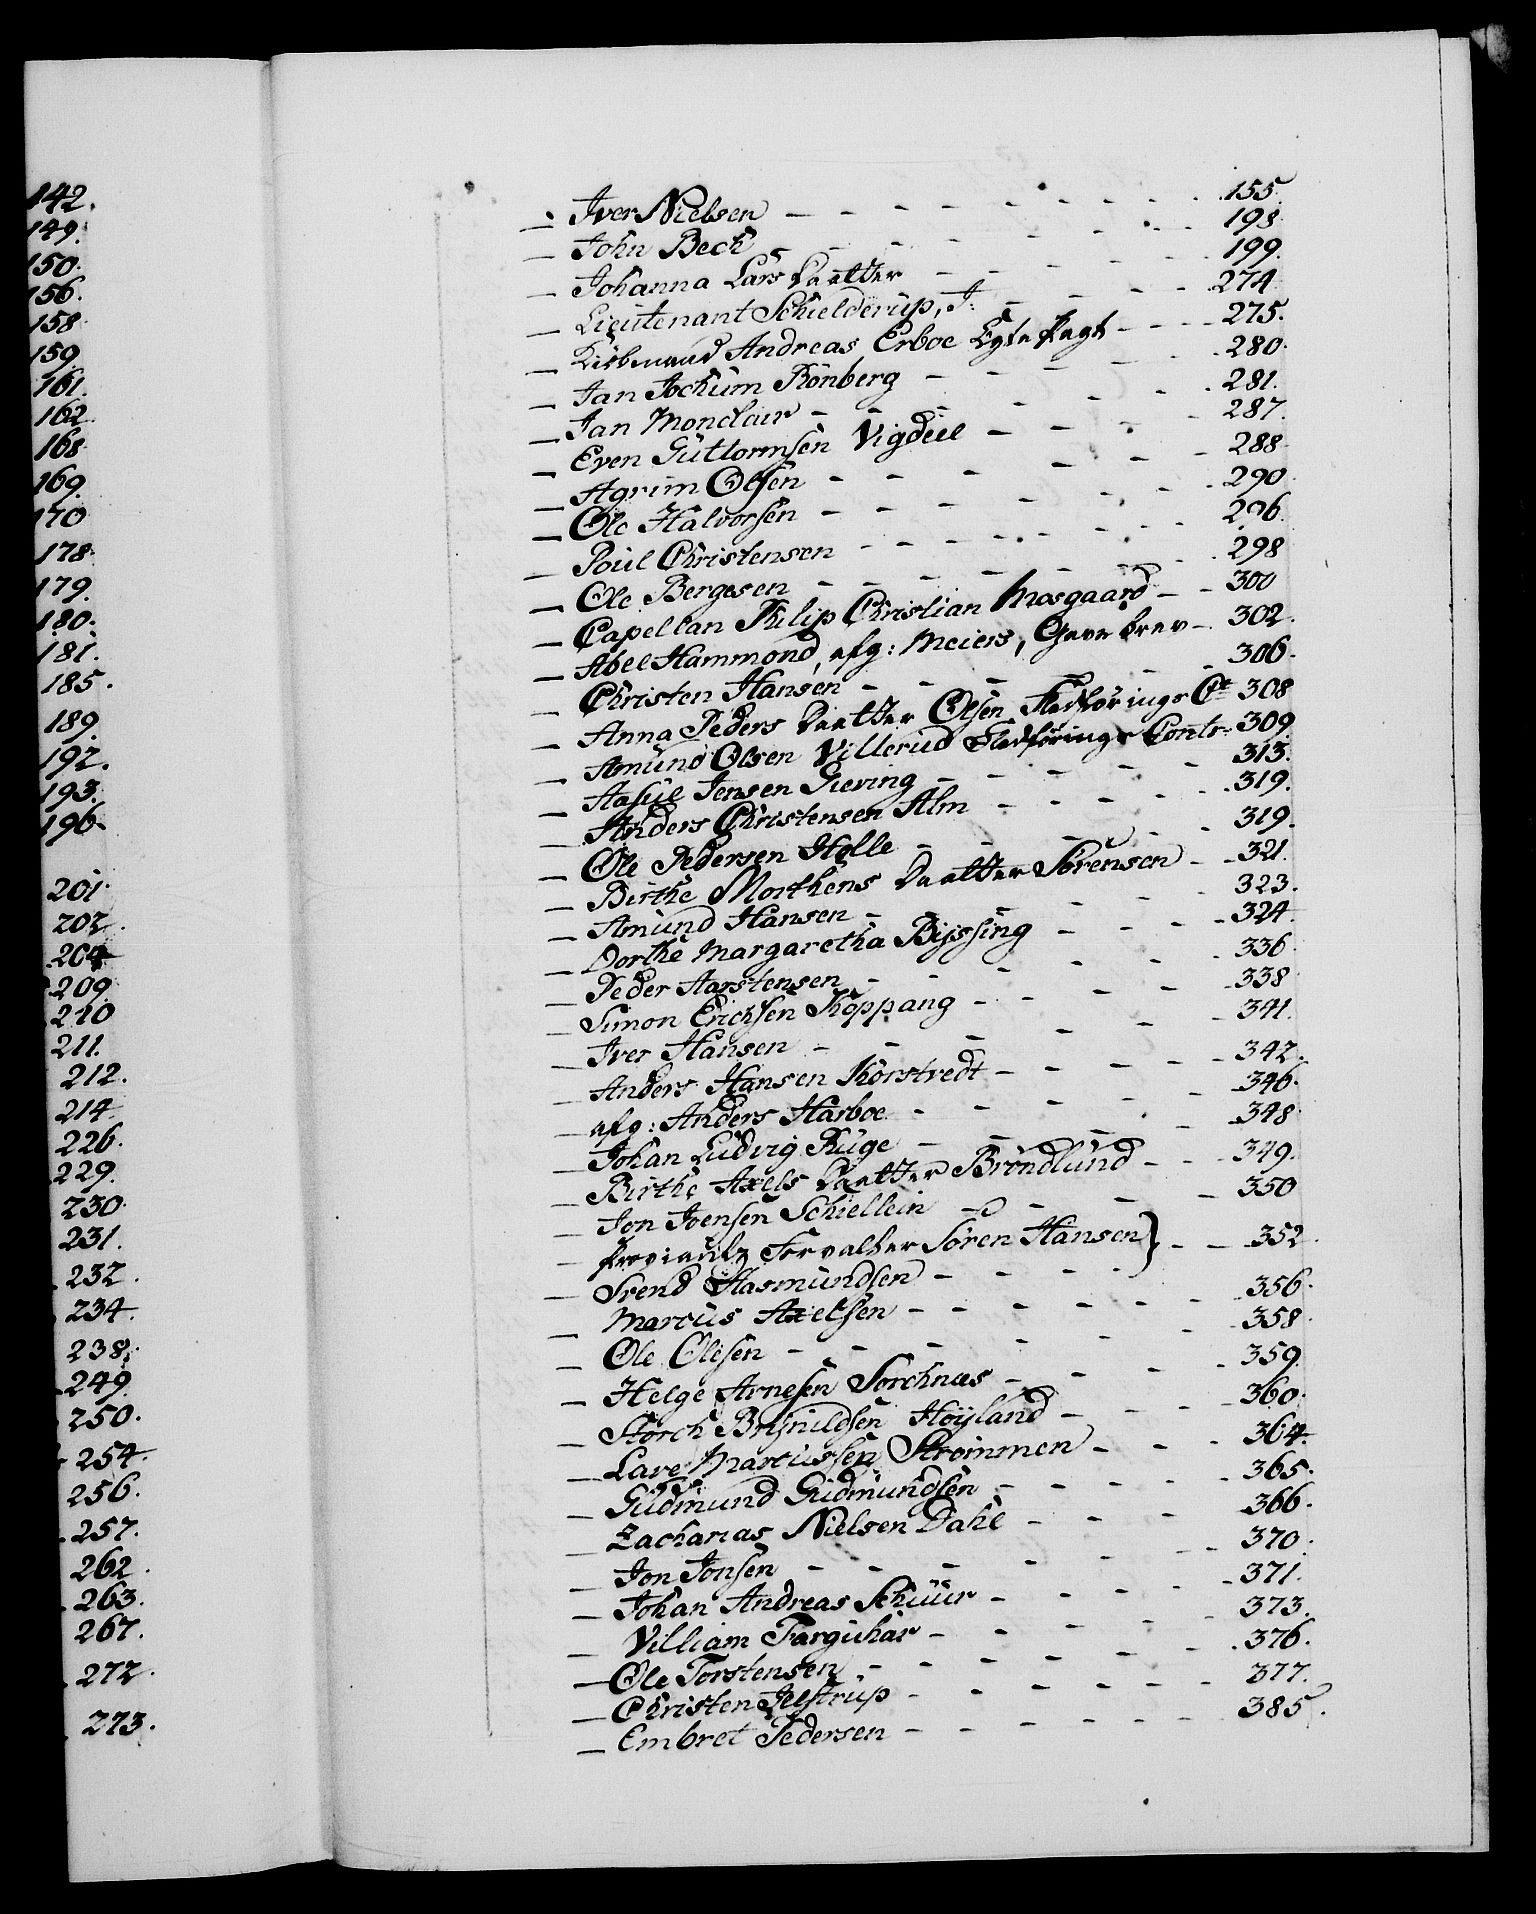 142.
149.
150.
156.
158
159
161.
162
168
169
170
178
179.
180.
181.
185.
189.
192.
193.
196.
201.
202.
204
209
210
211.
212.
214
226.
229.
230.
231.
232.
234.
238.
249.
250.
254.
256.
257.
262.
263.
267.
272.
273.
— Iver Nielsen - - - 155.
— John Bech - - - 198
— Johanna Lars Daatter - - - 199.
— Lieutenant Schielderup, J: - - - 274
— Kiöbmand Andreas Erboe Egte Pagt - - - 275.
— Jan Jochum Rönberg - - - 280.
— Jan Monclair - - - 281.
— Even Guttormsen Vigdeel - - - 287.
— Agrim Olsen - - - 288
— Ole Halvorsen - - - 290.
— Poul Christensen - - - 296.
— Ole Bergesen - - - 298
— Capellan Philip Christian Mosgaard - - 300
— Abel Hammond, afg: Meiers, Gave brev - 302.
— Christen Hansen - - - 306.
— Anna Peders Daatter Olsen Fledförings Ct 308
— Amund Olsen Villerud Fledförings Contr: 309.
— Aasul Jensen Giering - - - 313.
— Anders Christensen Alm - - - 319.
— Ole Pedersen Holle - - - 319.
— Birthe Morthens Daatter Sörensen - - 321.
— Amund Hansen - - - 323.
— Dorthe Margaretha Byssing - - - 324.
— Peder Aarstensen - - - 336.
— Simon Erichsen Koppang - - - 338
— Iver Hansen - - - 341.
— Anders Hansen Korstvedt - - - 342.
— afg: Anders Harboe - - - 346.
— Johan Ludvig Ruge - - - 348
— Birthe Axels Daatter Bröndlund - - - 349.
— Jon Joensen Schiellein - - - 350
— Proviantz Forvalter Sören Hansen} - - 352.
— Svend Aasmundsen - - -
— Marcus Axelsen - - - 356.
— Ole Olesen - - - 358
— Helge Arnesen Sorchnæs - - - 359.
— Storch Brynildsen Höyland - - - 360.
— Lave Marcussen Strömmen - - - 364.
— Gudmund Gudmundsen - - - 365.
— Zacharias Nielsen Dahl - - - 366.
— Jon Jonsen - - - 370.
— Johan Andreas Schuur - - - 371.
— Villiam Farguhar - - - 373.
— Ole Torstensen - - - 376.
— Christen Jelstrup - - - 377.
— Embret Pedersen - - - 385.